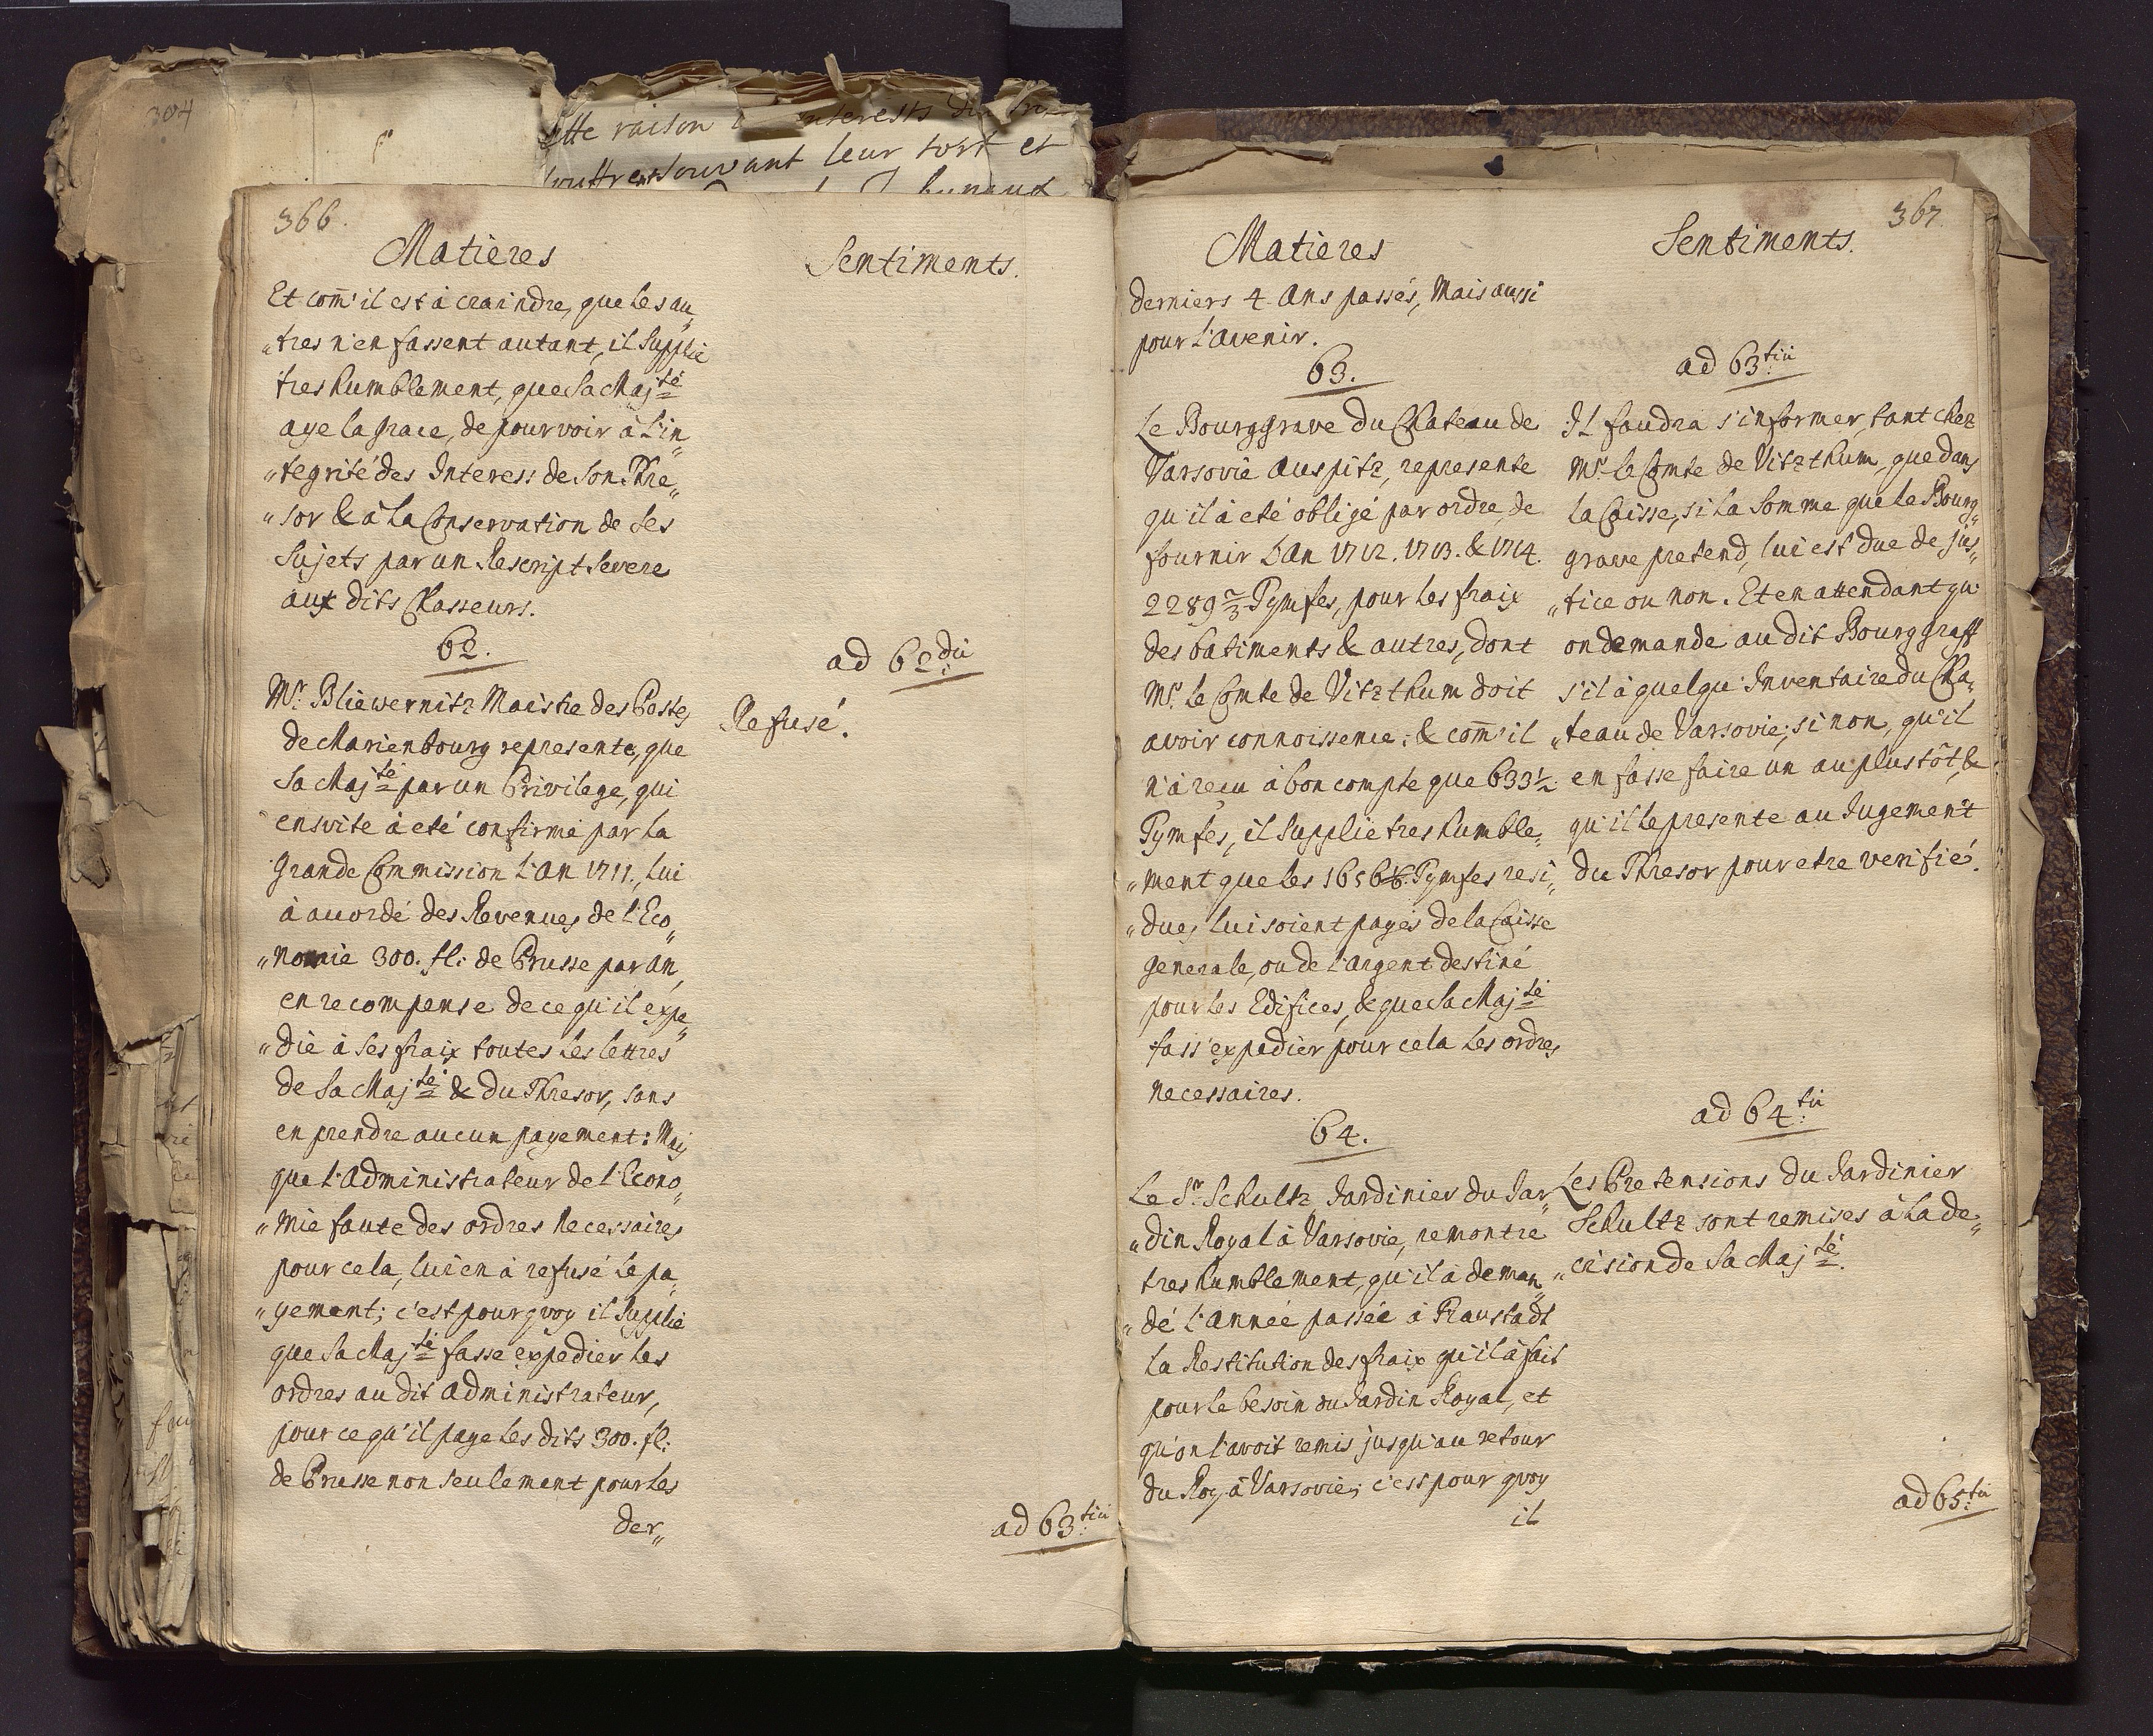 304
cette raison interests
souvant leur tort et
366.
Matieres
Et com̄'il est à craindre, que les au„
„tres n'en fassent autant, il Supplie
tres humblement, que Sa Maj.té
aye la grace, de pourvoir à l'in„
„tegrité des Interess de Son Thre„
„sor & à la Conservation de Ses
Sujets par un Rescript Severe
aux dits Chasseurs.
62.
Mr. Bliewernitz Maistre des Postes
de Marienbourg represente, que
Sa Maj.té par un Privilege, qui
ensuite à eté confirmé par la
Grande Commission l'An 1711., lui
à accordé des Revenues de l'Eco„
„nomie 300. fl: de Prusse par An,
en recompense de ce qu'il expe„
„die à Ses fraix toutes les lettres
de Sa Maj.té & du Thresor, sans
en prendre aucun payement: Mais
que l'Administrateur de l'Econo„
„mie faute des ordres necessaires
pour cela, lui en à refusé le pa„
„yement; c'est pourquoy il Supplie
que Sa Maj.té fasse expedier les
ordres au dit Administrateur,
pour ce qu'il paye les dits 300. fl:
de Prusse non seulement pour les
der„
Sentiments.
ad 62.di
Refusé.
ad 63.tii
367.
Matieres
derniers 4. Ans passés, Mais aussi
pour l'avenir.
63.
Le Bourggrave du Chateau de
Varsovie Auspitz, represente
qu'il à eté obligé par ordre, de
fournir l'An 1712. 1713. & 1714.
2289 2/3 Tymfes, pour les fraix
des batiments & autres, dont
Mr. le Comte de Vitzthum doit
avoir connoissence; & com̄'il
n'à reçu à bon compte que 633 1/2
Tymfes, il Supplie tres humble„
„ment que les 1656 1/6. Tymfes resi„
„dues lui soient payés de la Caisse
generale, ou de l'argent destiné
pour les Edifices, & que Sa Maj.té
fass'expedier pour cela les ordres
necessaires.
64.
Le Sr. Schultz Jardinier du Jar„
„din Royal à Varsovie, remontre
tres humblement, qu'il à deman„
„dé l'année passée à Fraustadt
la Restitution des fraix qu'il à fait
pour le besoin du Jardin Royal, et
qu'on l'avoit remis jusqu'au retour
du Roy à Varsovie; c'est pour quoy
il
Sentiments.
ad 63.tii
Il faudra s'informer, tant chez
Mr. le Comte de Vitzthum, que dans
la Caisse, si la Somme que le Bourg„
grave pretend, lui est due de jus„
„tice ou non. Et en attendant qu'
on demande au dit Bourggraff
s'il à quelqu'Inventaire du Cha„
„teau de Varsovie; si non, qu'il
en fasse faire un au plustôt, &
qu'il le presente au Jugement
du Thresor pour etre verifié.
ad 64.tii
Les Pretensions du Jardinier
Schultz sont remises à la de„
„cision de Sa Maj.té.
ad 65.tii